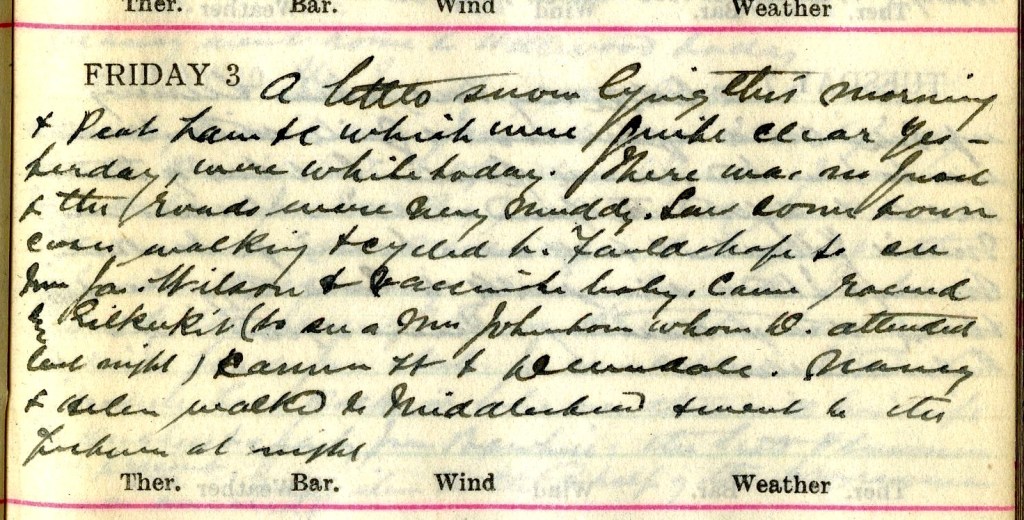 Ther. Bar. Wind Weather
FRIDAY 3 A little snow lying this morning
& Peat Law &c which were quite clear yes-
terday, were white today. There was no frost
& the roads were very muddy. Saw some town
cases walking & cycled to Fauldshope to see
Mrs Jas. Wilson & vaccinate baby. Came round
by (to see a Mrs Johnstone whom D. attended
last night) &. Nancy
& Helen walked to Middlestead & went to the
pictures at night.
Ther. Bar. Wind Weather